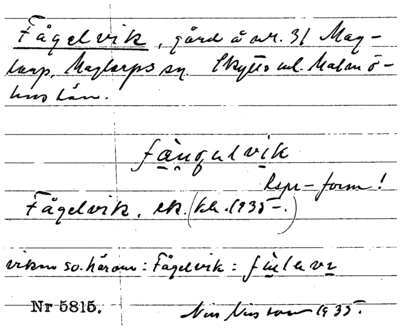 Fågelvik, gård å nr. 31 Mag-
larp, Maglarps sn. Skytts hd. Malmö-
hus län.
Rspr-form!
Fågelvik, ek. (kh. 1935-.)
viken so. härom: Fågelvik:
Nr 5815. Nils Nilsson 1935.